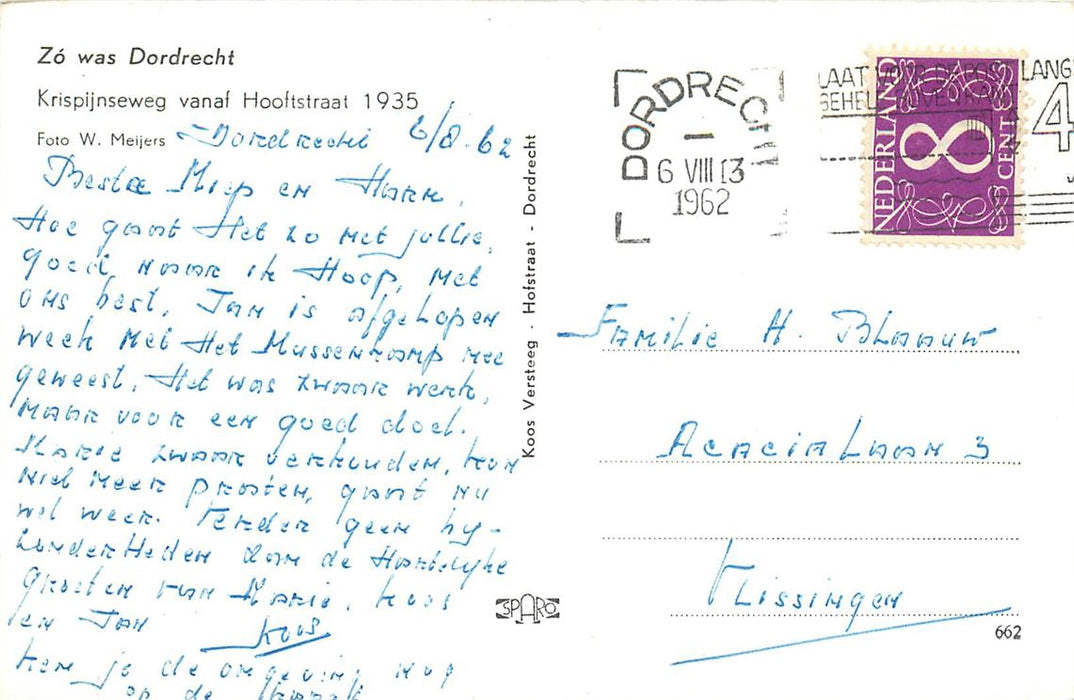 Zó was Dordrecht
Krispijnseweg vanaf Hooftstraat 1935
Foto W. Meijers
Dordrecht 6/8.62
Beste Miep en Harm.
Hoe gaat Het zo met jullie,
goed, maar ik Hoop, met
ons best. Jan is afgelopen
week met Het Mussenkamp mee
geweest. Het was zwaar werk,
maar voor een goed doel.
Marie zwaar verkouden, kon
niet meer praten, gaat nu
wel weer. Verder geen by-
zonderHeden dan de Hartelijke
groeten van Marie, Koos
en Jan
Koos
Ken je de omgeving nog
op de
Koos Versteeg - Hofstraat - Dordrecht
SPARO
DORDRECHT
6 VIII 13
1962
LANG
4
NEDERLAND
8
CENT
Familie H. Blaauw
Acacialaan 3
Vlissingen
662